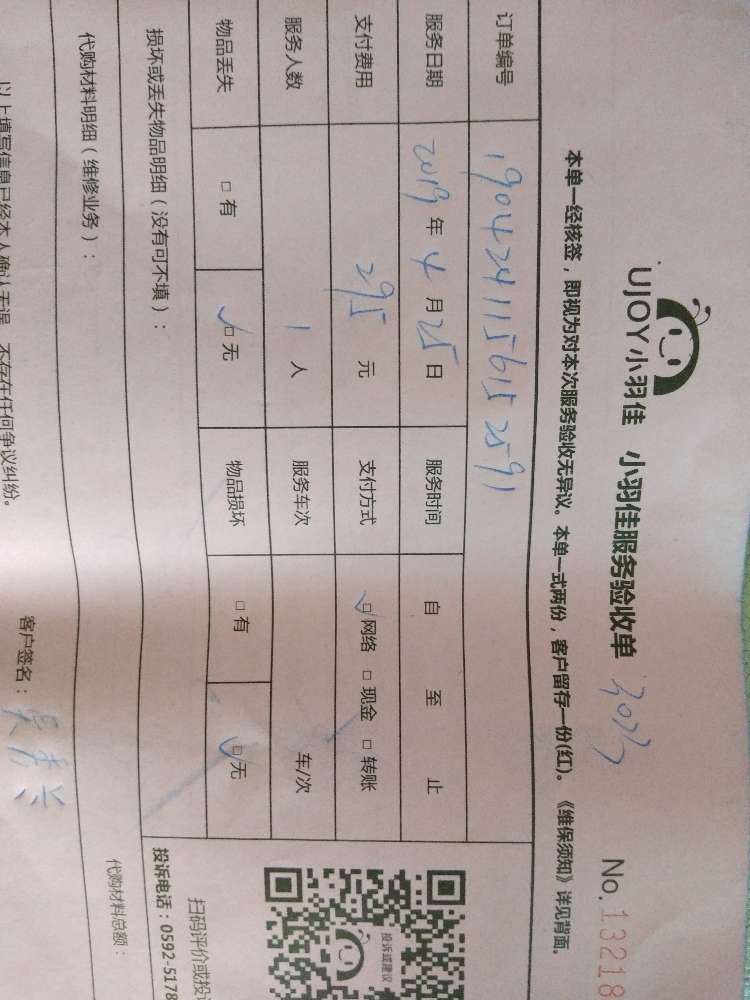 UJOY小羽佳 小羽佳服务验收单 No.13218
本单一经核签，即视为对本次服务验收无异议。本单一式两份，客户留存一份(红)。《维保须知》详见背面。
订单编号 1904241156152591
服务日期 2019 年 4 月 25 日 服务时间 自 至 止
支付费用 295 元 支付方式 □网络 □现金 □转账
服务人数 1 人 服务车次 车/次
物品丢失 □有 □无 物品损坏 □有 □无
损坏或丢失物品明细（没有可不填）：
代购材料明细（维修业务）： 代购材料总额：
以上填写信息已经本人确认无误，不存在任何争议纠纷。
客户签名：
投诉或建议
扫码评价或投
投诉电话：0592-5178